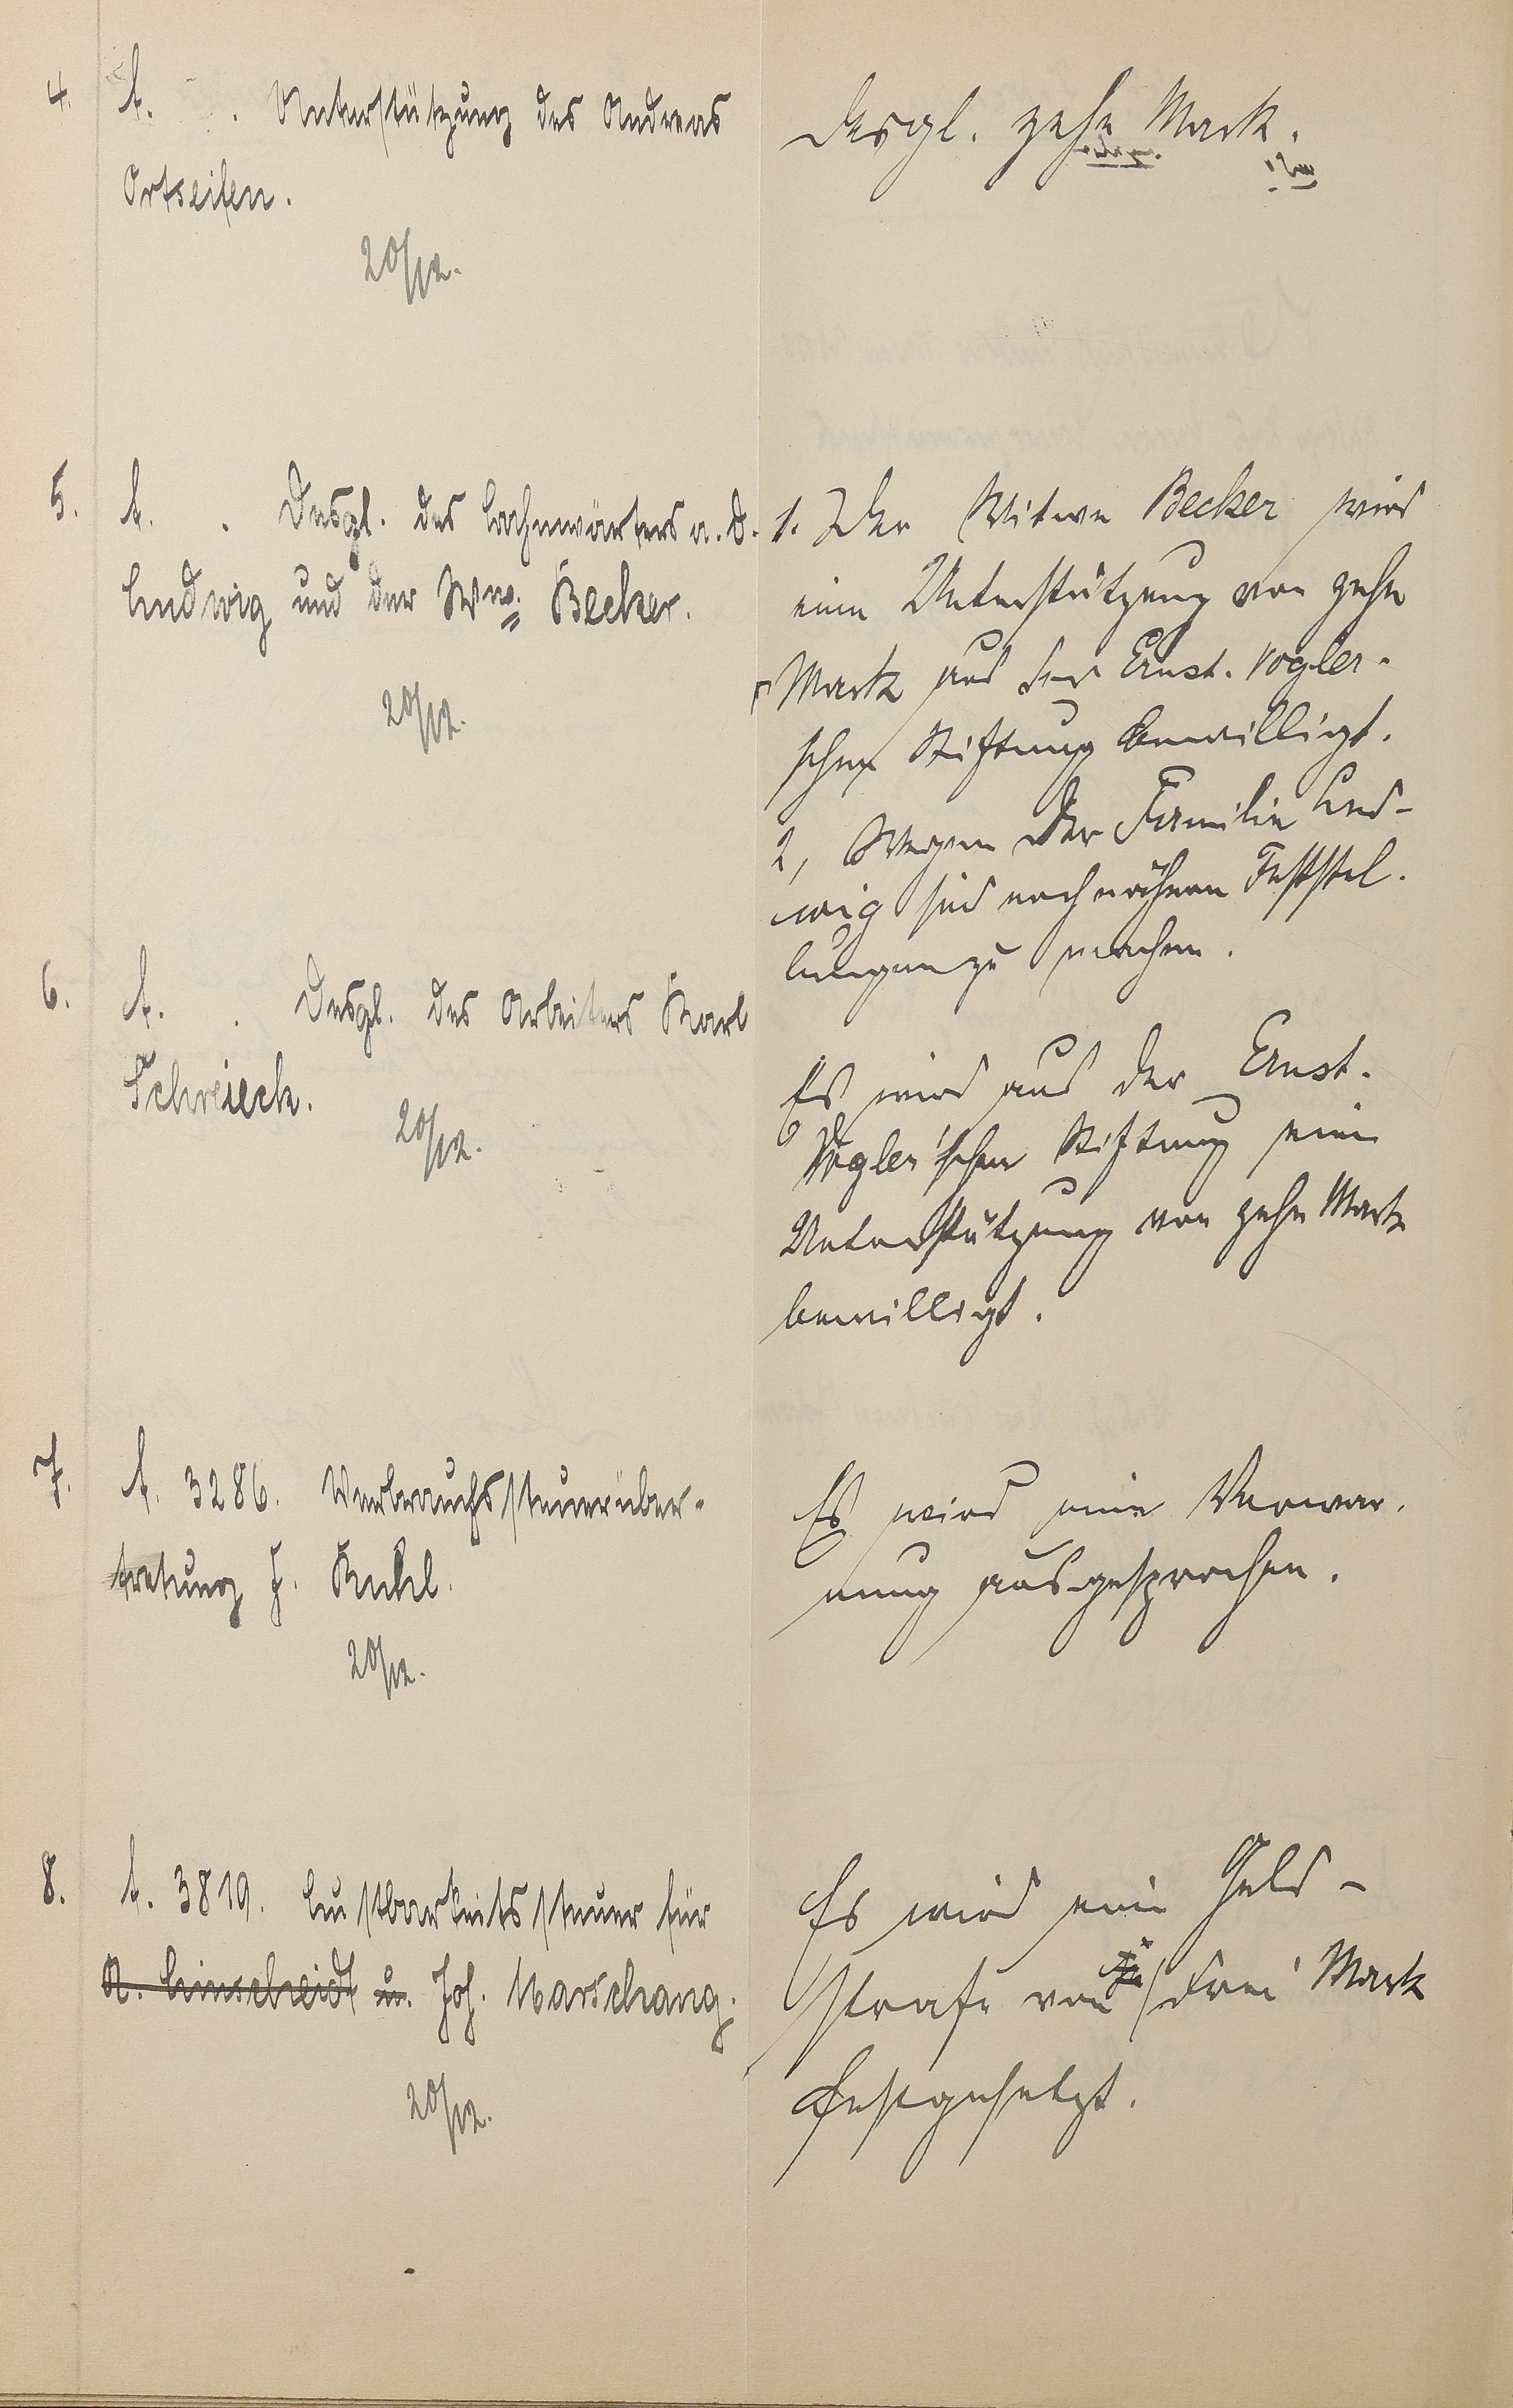 4. A. . Unterstützung des Andreas
Ortseifen.
20/12.
Desgl. zehn Mark.
5. A. . Desgl. des Bahnwärters a. D.
Ludwig und der Ww. Becker.
20/12.
1. Der Witwe Becker wird
eine Unterstützung von zehn
Mark aus der Ernst. Vogler-
schen Stiftung bewilligt.
2, Wegen der Familie Lud-
wig sind noch nähere Feststel-
lungen zu machen.
6. A. . Desgl. des Arbeiters Karl
Schreieck.
20/12.
Es wird aus der Ernst-
Vogler'schen Stiftung eine
Unterstützung von zehn Mark
bewilligt.
7. A. 3286. Verbrauchssteuerüber-
tretung H. Kuhl.
20/12.
Es wird eine Verwar-
nung ausgesprochen.
8. A. 3819. Lustbarkeitssteuer für
A. Linscheidt u. Joh. Marschang.
20/12.
Es wird eine Geld-
strafe von je drei Mark
festgesetzt.